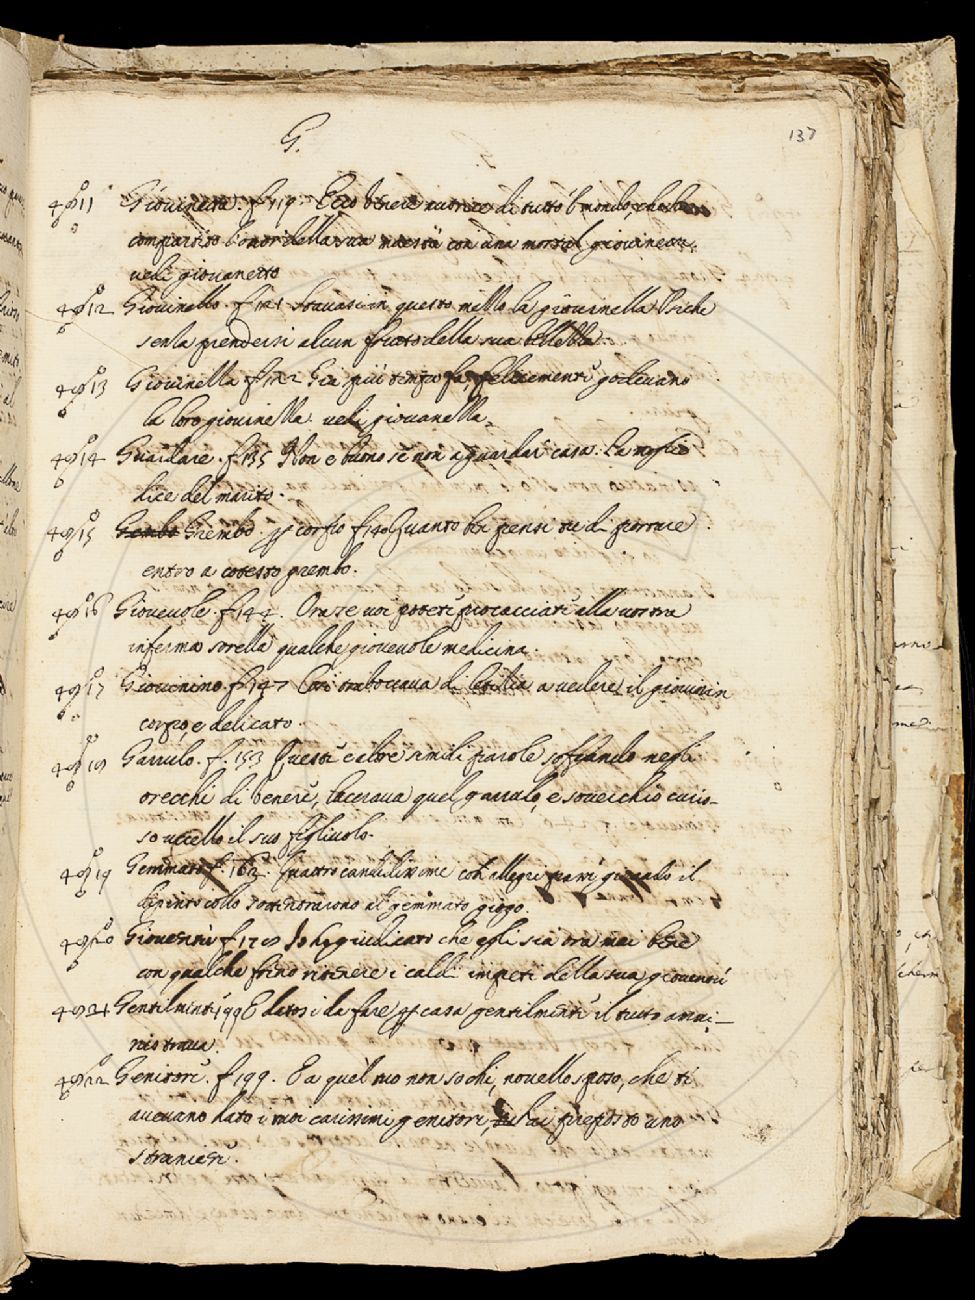 G.
137
4911 Giovinetta. f 119. Ecco Venere nutrice di tutto 'l mondo, che ho
compartito l'onor della mia maestà con una mortal giovinetta.
vedi giovanetto
4912 Giovinella. f 121 Stavasi in questo mezzo la giovinella Psiche
senza prendersi alcun frutto della sua bellezza.
4913 Giovinezza f 122 Già più tempo fa, felicemente godevano
la loro giovinezza. vedi giovanezza.
4914 Guardare. f 135 Non è buono se non a guardar casa. La moglie
dice del marito.
4915 Grembo. p corpo f 140 Quanto ben pensi tu di portare
entro a cotesto grembo.
4916 Giovevole. f 144. Ora se voi potete procacciate alla vostra
inferma sorella qualche giovevole medicina.
4917 Giovenino. f 147 Così traboccava di letizia a vedere il giovenin
corpo, e delicato.
4918 Garrulo. f. 153 Queste e altre simili parole soffiando negli
orecchi di Venere, lacerava quel garrulo, e soverchio curio-
so uccello il suo figliuolo.
4919 Gemmato f. 162. Quattro candidissime con allegri passi girando il
dipinto collo sottentrarono al gemmato giogo.
4920 Gioventù f 170 Io ho giudicato che egli sia ora mai bene
con qualche freno ritenere i caldi impeti della sua gioventù
4921 Gentilmente 199 E datosi da fare p casa gentilmente il tutto ammi-
nistrava.
4922 Genitore. f 199. E a quel tuo non so chi, novello sposo, che ti
avevano dato i tuoi carissimi genitori, hai preposto uno
straniero.